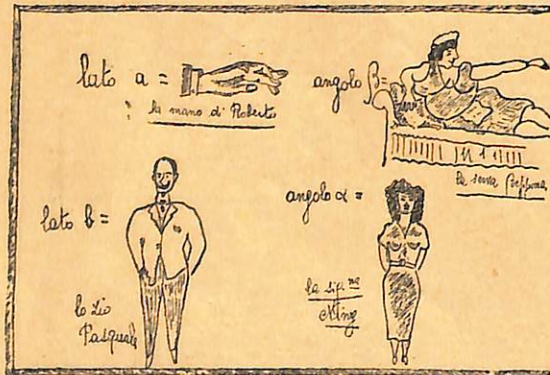 lato a =
la mano di Roberto
angolo β =
la serva Peppona
lato b =
lo zio
Pasquale
angolo α =
la sig.na